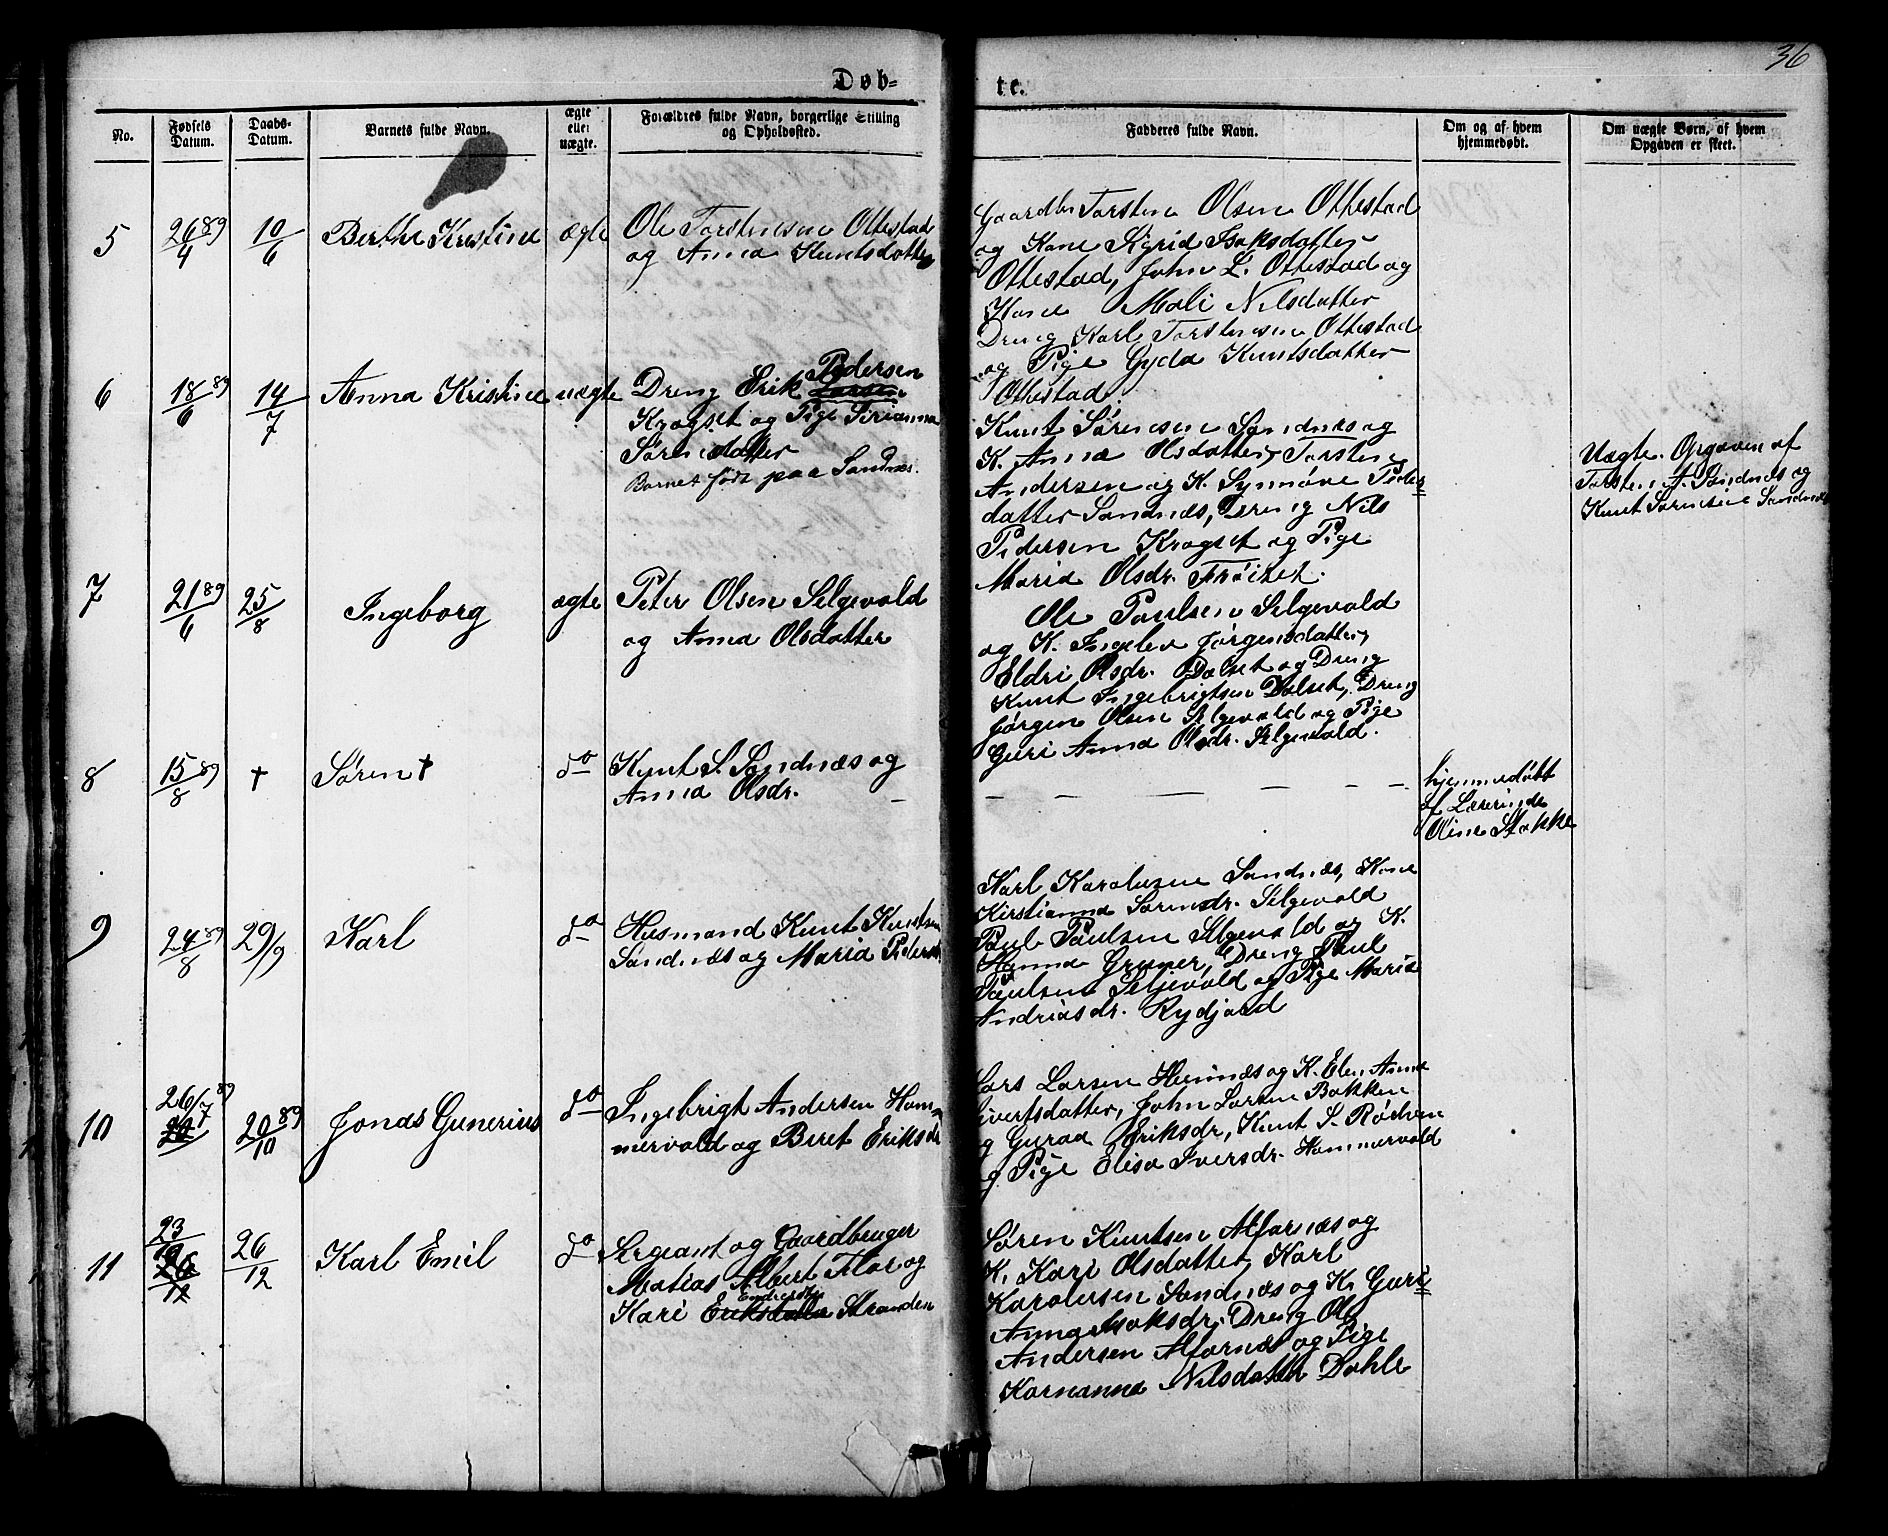 36
Døb-
te.
No.
Fødsels Datum.
Daabs-Datum.
Barnets fulde Navn.
ægte eller uægte.
Forældres fulde Navn, borgerlige Stilling og Opholdssted.
Fadderes fulde Navn.
Om og af hvem hjemmedøbt.
Om uægte Børn, af hvem Opgaven er skeet.
5
26/4 89
10/6
Berthe Kristine
ægte
Ole Torstensen Ottestad
og Anna Knutsdatter
Gaardbr Torsten Olsen Ottestad
og Kone Sigrid Isaksdatter
Ottestad, John L. Ottestad og
Kone Mali Nilsdatter
Dreng Karl Torstensen Ottestad
og Pige Gyda Knutsdatter
Ottestad.
6
18/6 89
14/7
Anna Kristine
uægte
Dreng Erik Pedersen
Larsen
Kragset og Pige Serianna
Sørensdatter
Barnet født paa Sandnæs.
Knut Sørensen Sandnæs og
K. Anna Olsdatter, Torsten
Andersen og K. Synnøve Peders=
datter Sandnæs, Dreng Nils
Pedersen Kragset og Pige
Maria Olsdr. Trøitet.
Uægte. Opgaven af
Torsten A. Sandnæs og
Knut Sørensen Sandnæs
7
21/6 89
25/8
Ingeborg
ægte
Peter Olsen Selgevold
og Anna Olsdatter
Ole Paulsen Selgevold
og K. Ingelev Jørgensdatter,
Eldri Olsdr. Dalset og Dreng
Knut Ingebrigtsen Dalset, Dreng
Jørgen Olsen Selgevold og Pige
Guri Anna Olsdr. Selgevold.
8
15/8 89
†
Søren †
do
Knut S. Sandnæs og
Anna Olsdr.
hjemmedøbt
af Læreride
Oline Stokke
9
24/8 89
29/9
Karl
do
Husmand Knut Knutsen
Sandnæs og Maria Pedersd.
Karl Karolusen Sandnæs, Kone
Kirstianna Sørensdr. Selgevold
Paul Paulsen Selgevold og K.
Hanna Gruner, Dreng Paul
Paulsen Seljevold og Pige Marie
Andriasdr. Rydjord
10
26/7 89
20/10 89
Jonas Gunerius
do
Ingebrigt Andersen Ham=
mervold og Beret Eriksdr
Lars Larsen Hennæs og K. Elen Anne
Sivertsdatter, John Larsen Bakken
og Guraa Eriksdr, Knut S. Rødven
og Pige Elisa Iversdr. Hammervold
11
23
26/12
Karl Emil
do
Sergeant og Gaardbruger
Matias Albert Flor og
Endresdtr
Kari Eriksdatter Stranden
Søren Knutsen Alfarnæs og
K. Kari Olsdatter, Karl
Karolusen Sandnæs og K. Guri=
Anna Isaksdr, Dreng Ole
Andersen Alfarnæs og Pige
Kornanna Nilsdatter Dahle